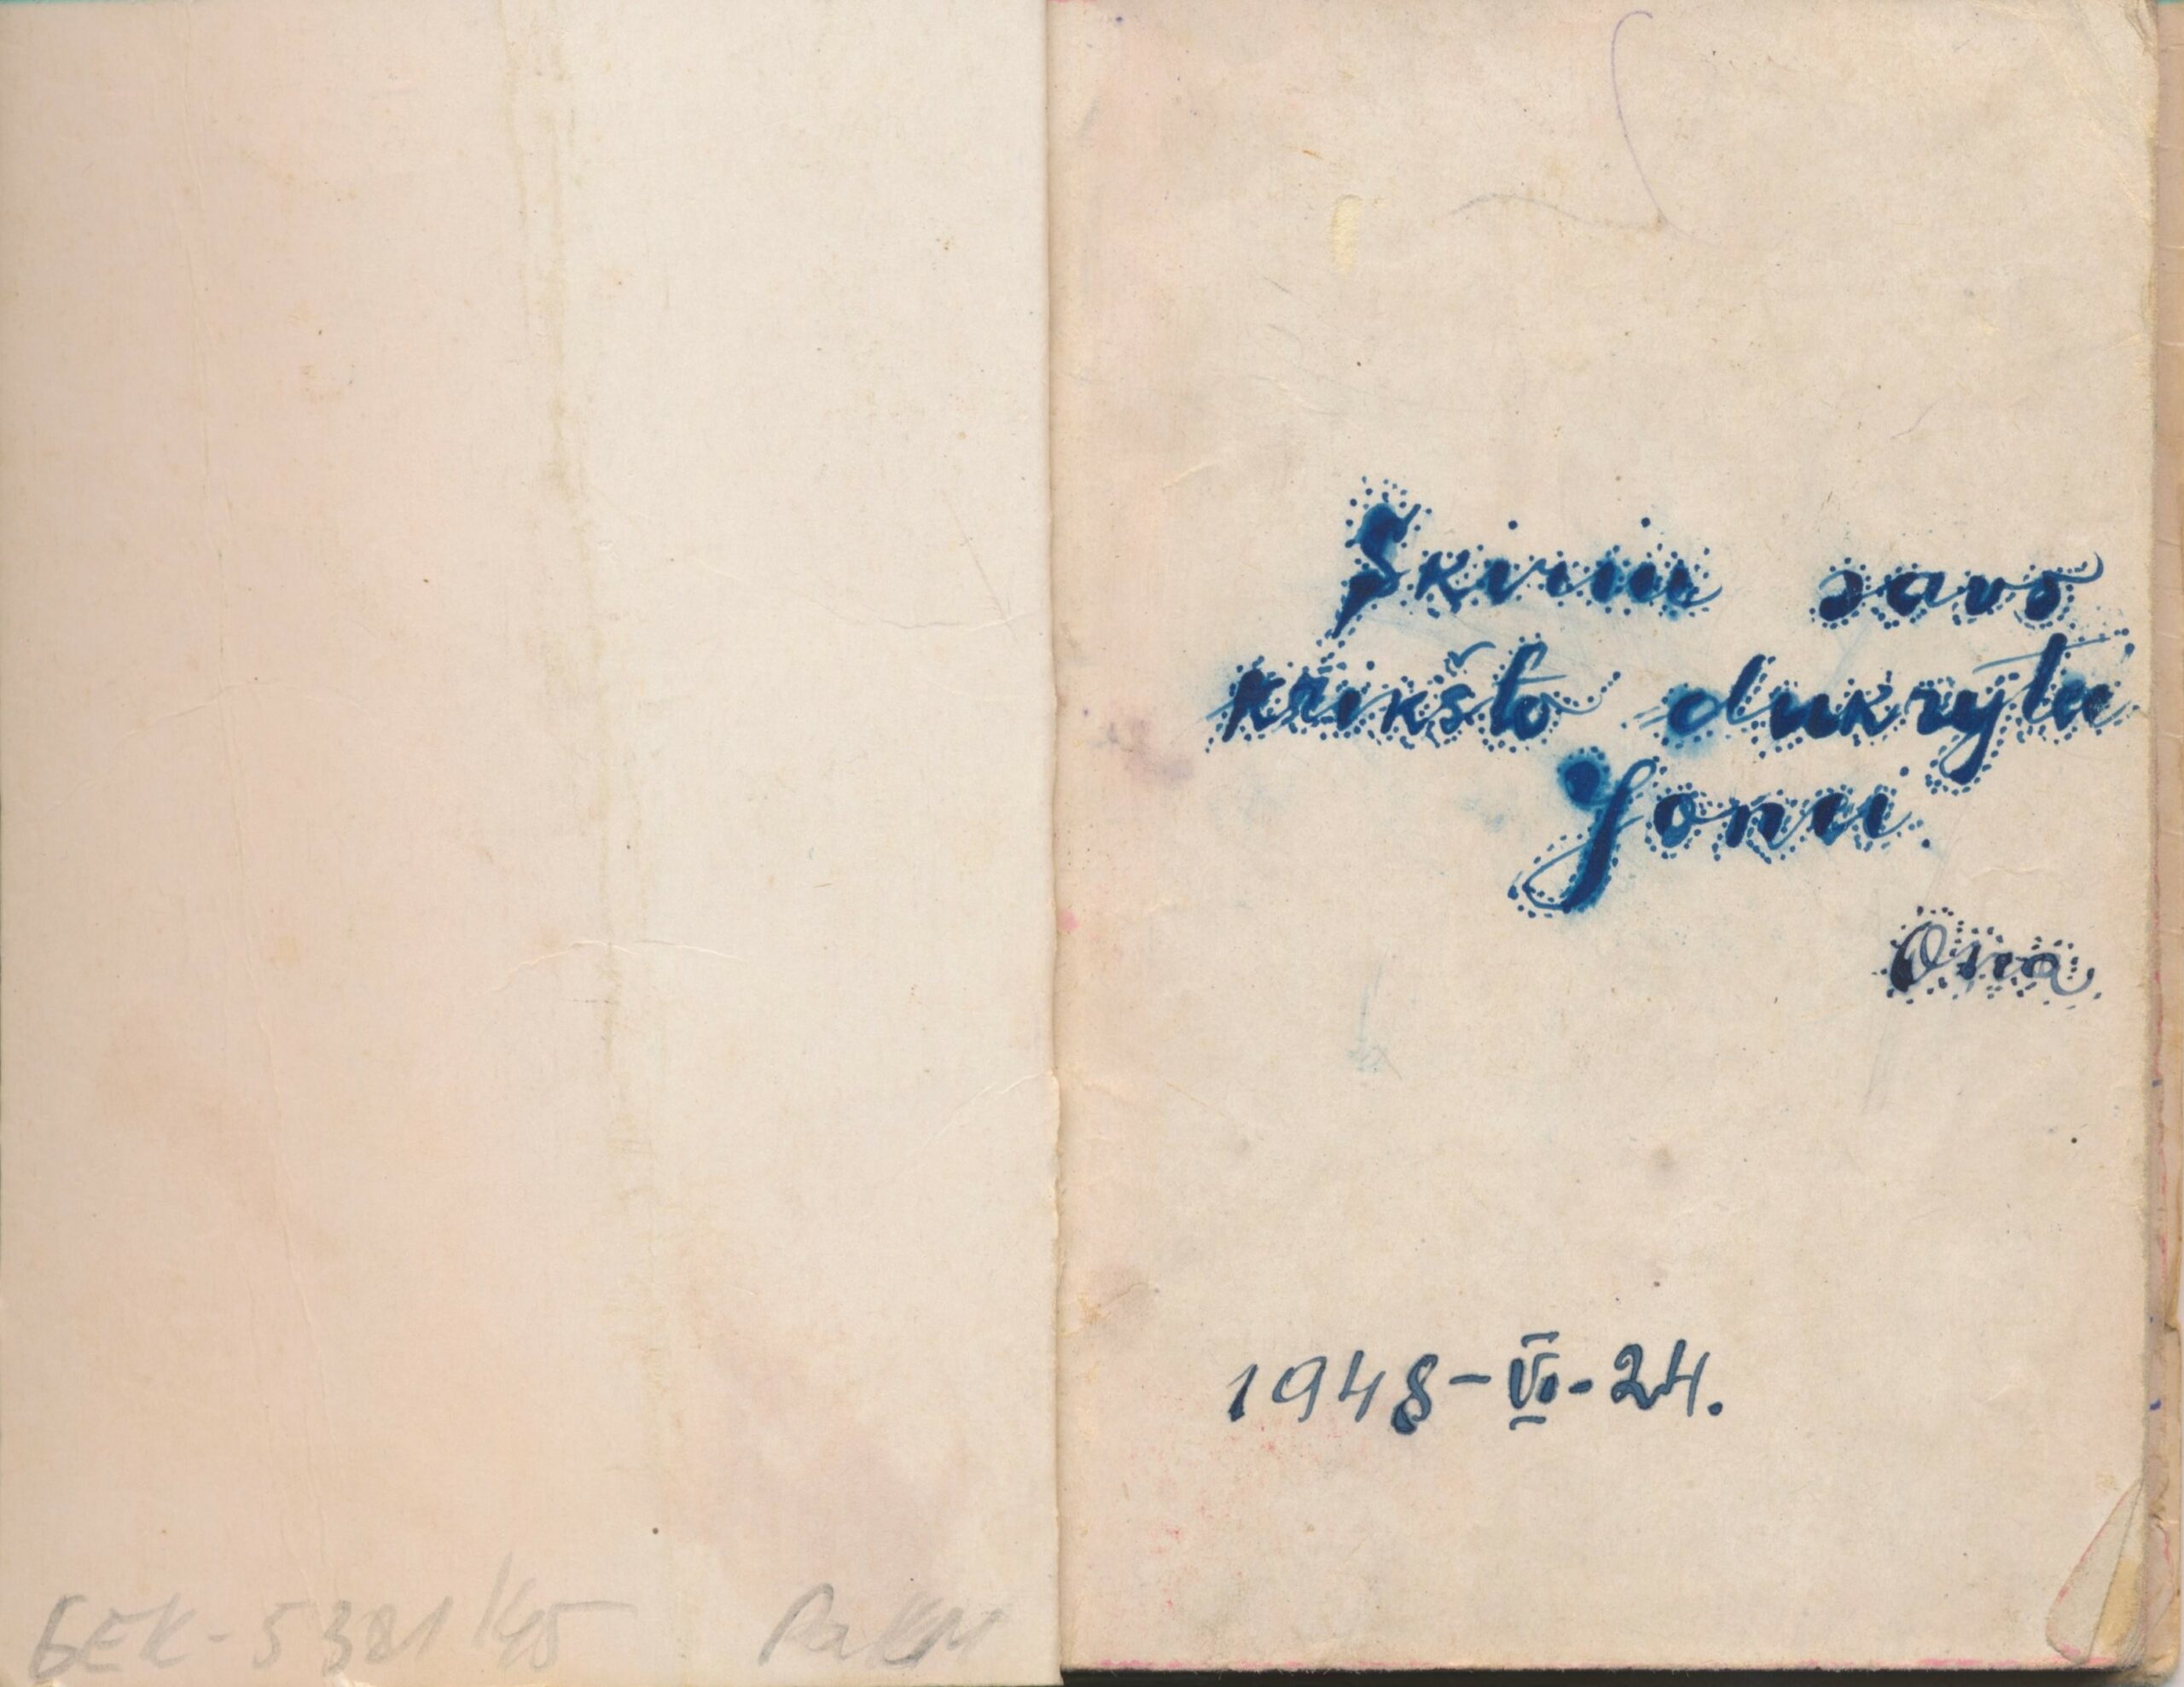 GEK-5321/45 PaKM
Skiriu savo
krikšto dukrytei
Jonei.
Ona
1948-VI-24.